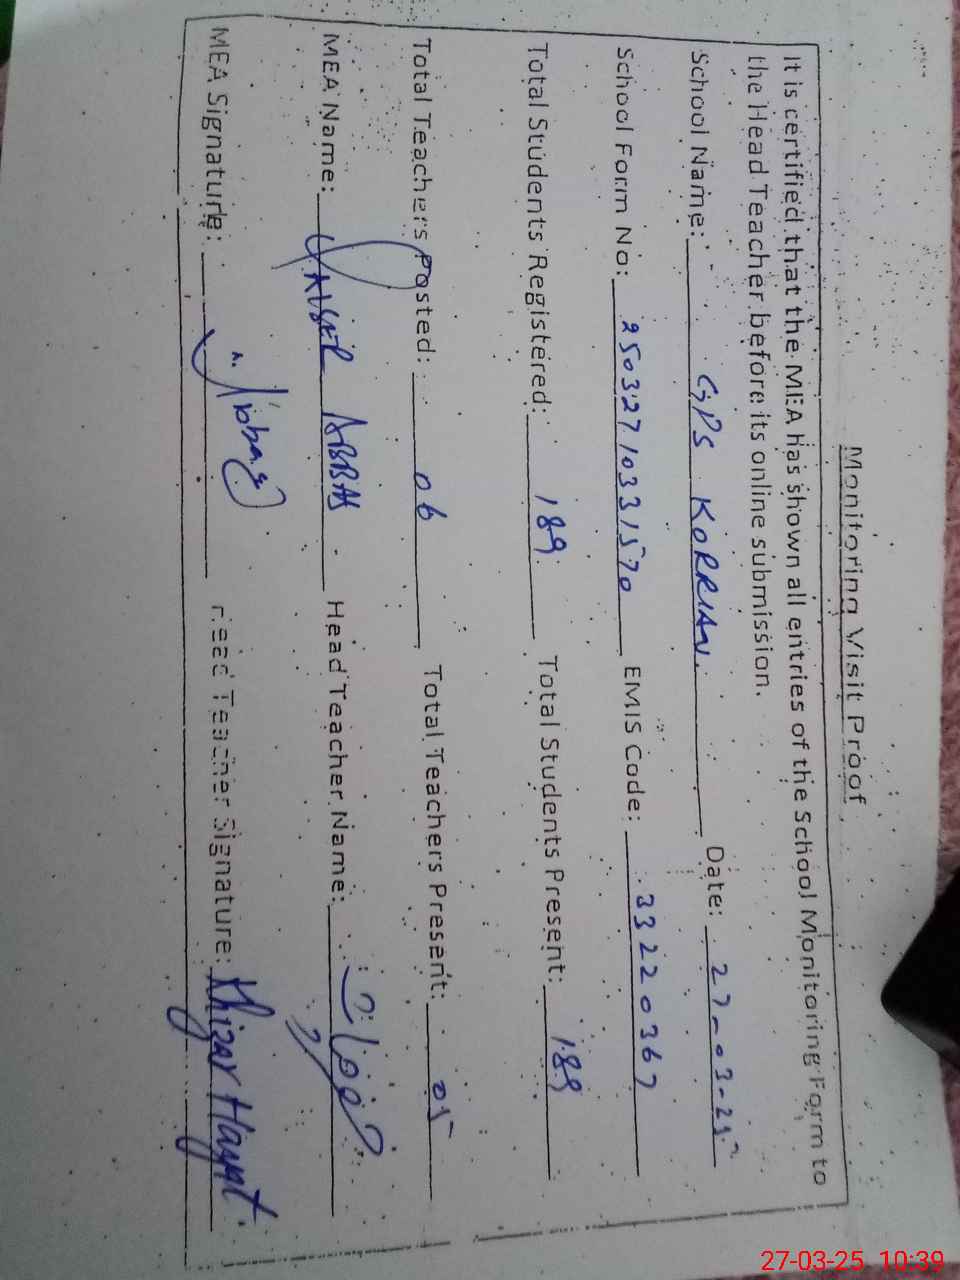 Monitoring Visit Proof
It is certified that the MEA has shown all entries of the School Monitoring Form to
the Head Teacher before its online submission.
School Name: GPS KORRIAN. Date: 27-03-25
School Form No: 25032710331570 EMIS Code: 33220367
Total Students Registered: 189 Total Students Present: 189
Total Teachers Posted: 06 Total Teachers Present: 05
MEA Name: YAUSER ABBAS Head Teacher Name: خضر حیات
MEA Signature: Head Teacher Signature: Khizar Hayat
27-03-25 10:39